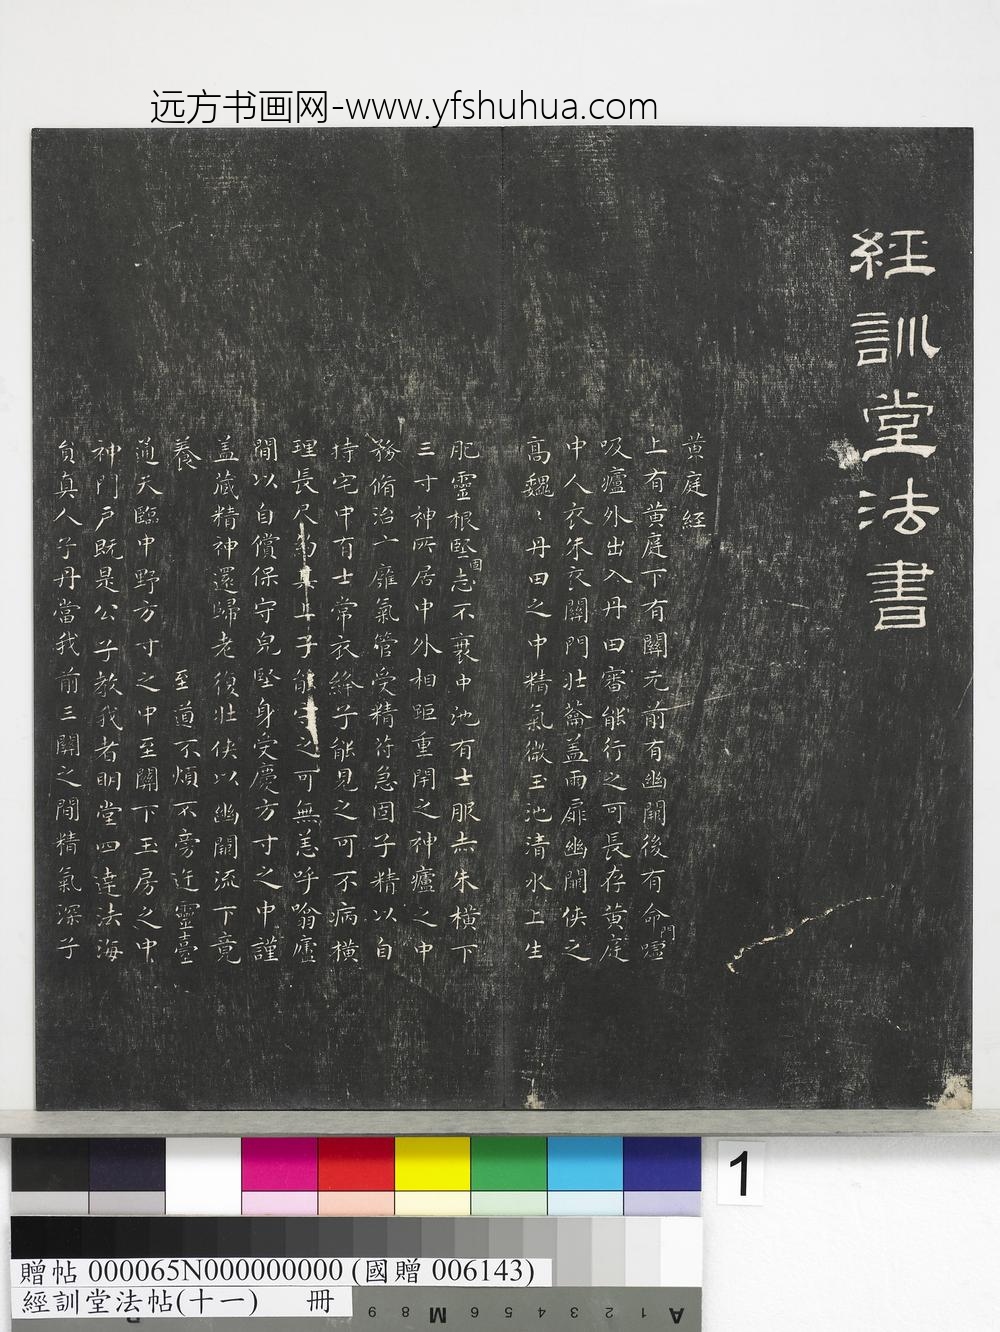 远方书画网-www.yfshuhua.com
經訓堂法書
黄庭經
上有黄庭下有關元前有幽闕後有命門嘘
吸廬外出入丹田審能行之可長存黄庭
中人衣朱衣關門壯蘥盖兩扉幽闕俠之
高魏〻丹田之中精氣微玉池清水上生
肥靈根堅固志不衰中池有士服赤朱橫下
三寸神所居中外相距重閉之神廬之中
務脩治亠廱氣管受精符急固子精以自
持宅中有士常衣絳子能見之可不病橫
理長尺約其上子能守之可無恙呼噏廬
間以自償保守皃堅身受慶方寸之中謹
盖藏精神還歸老復壯俠以幽闕流下竟
養 至道不煩不旁迕靈臺
通天臨中野方寸之中至關下玉房之中
神門户既是公子教我者明堂四達法海
貟真人子丹當我前三關之間精氣深子
1
贈帖 000065N000000000 (國贈 006143)
經訓堂法帖(十一) 冊
A 1 2 3 4 5 6 M 8 9